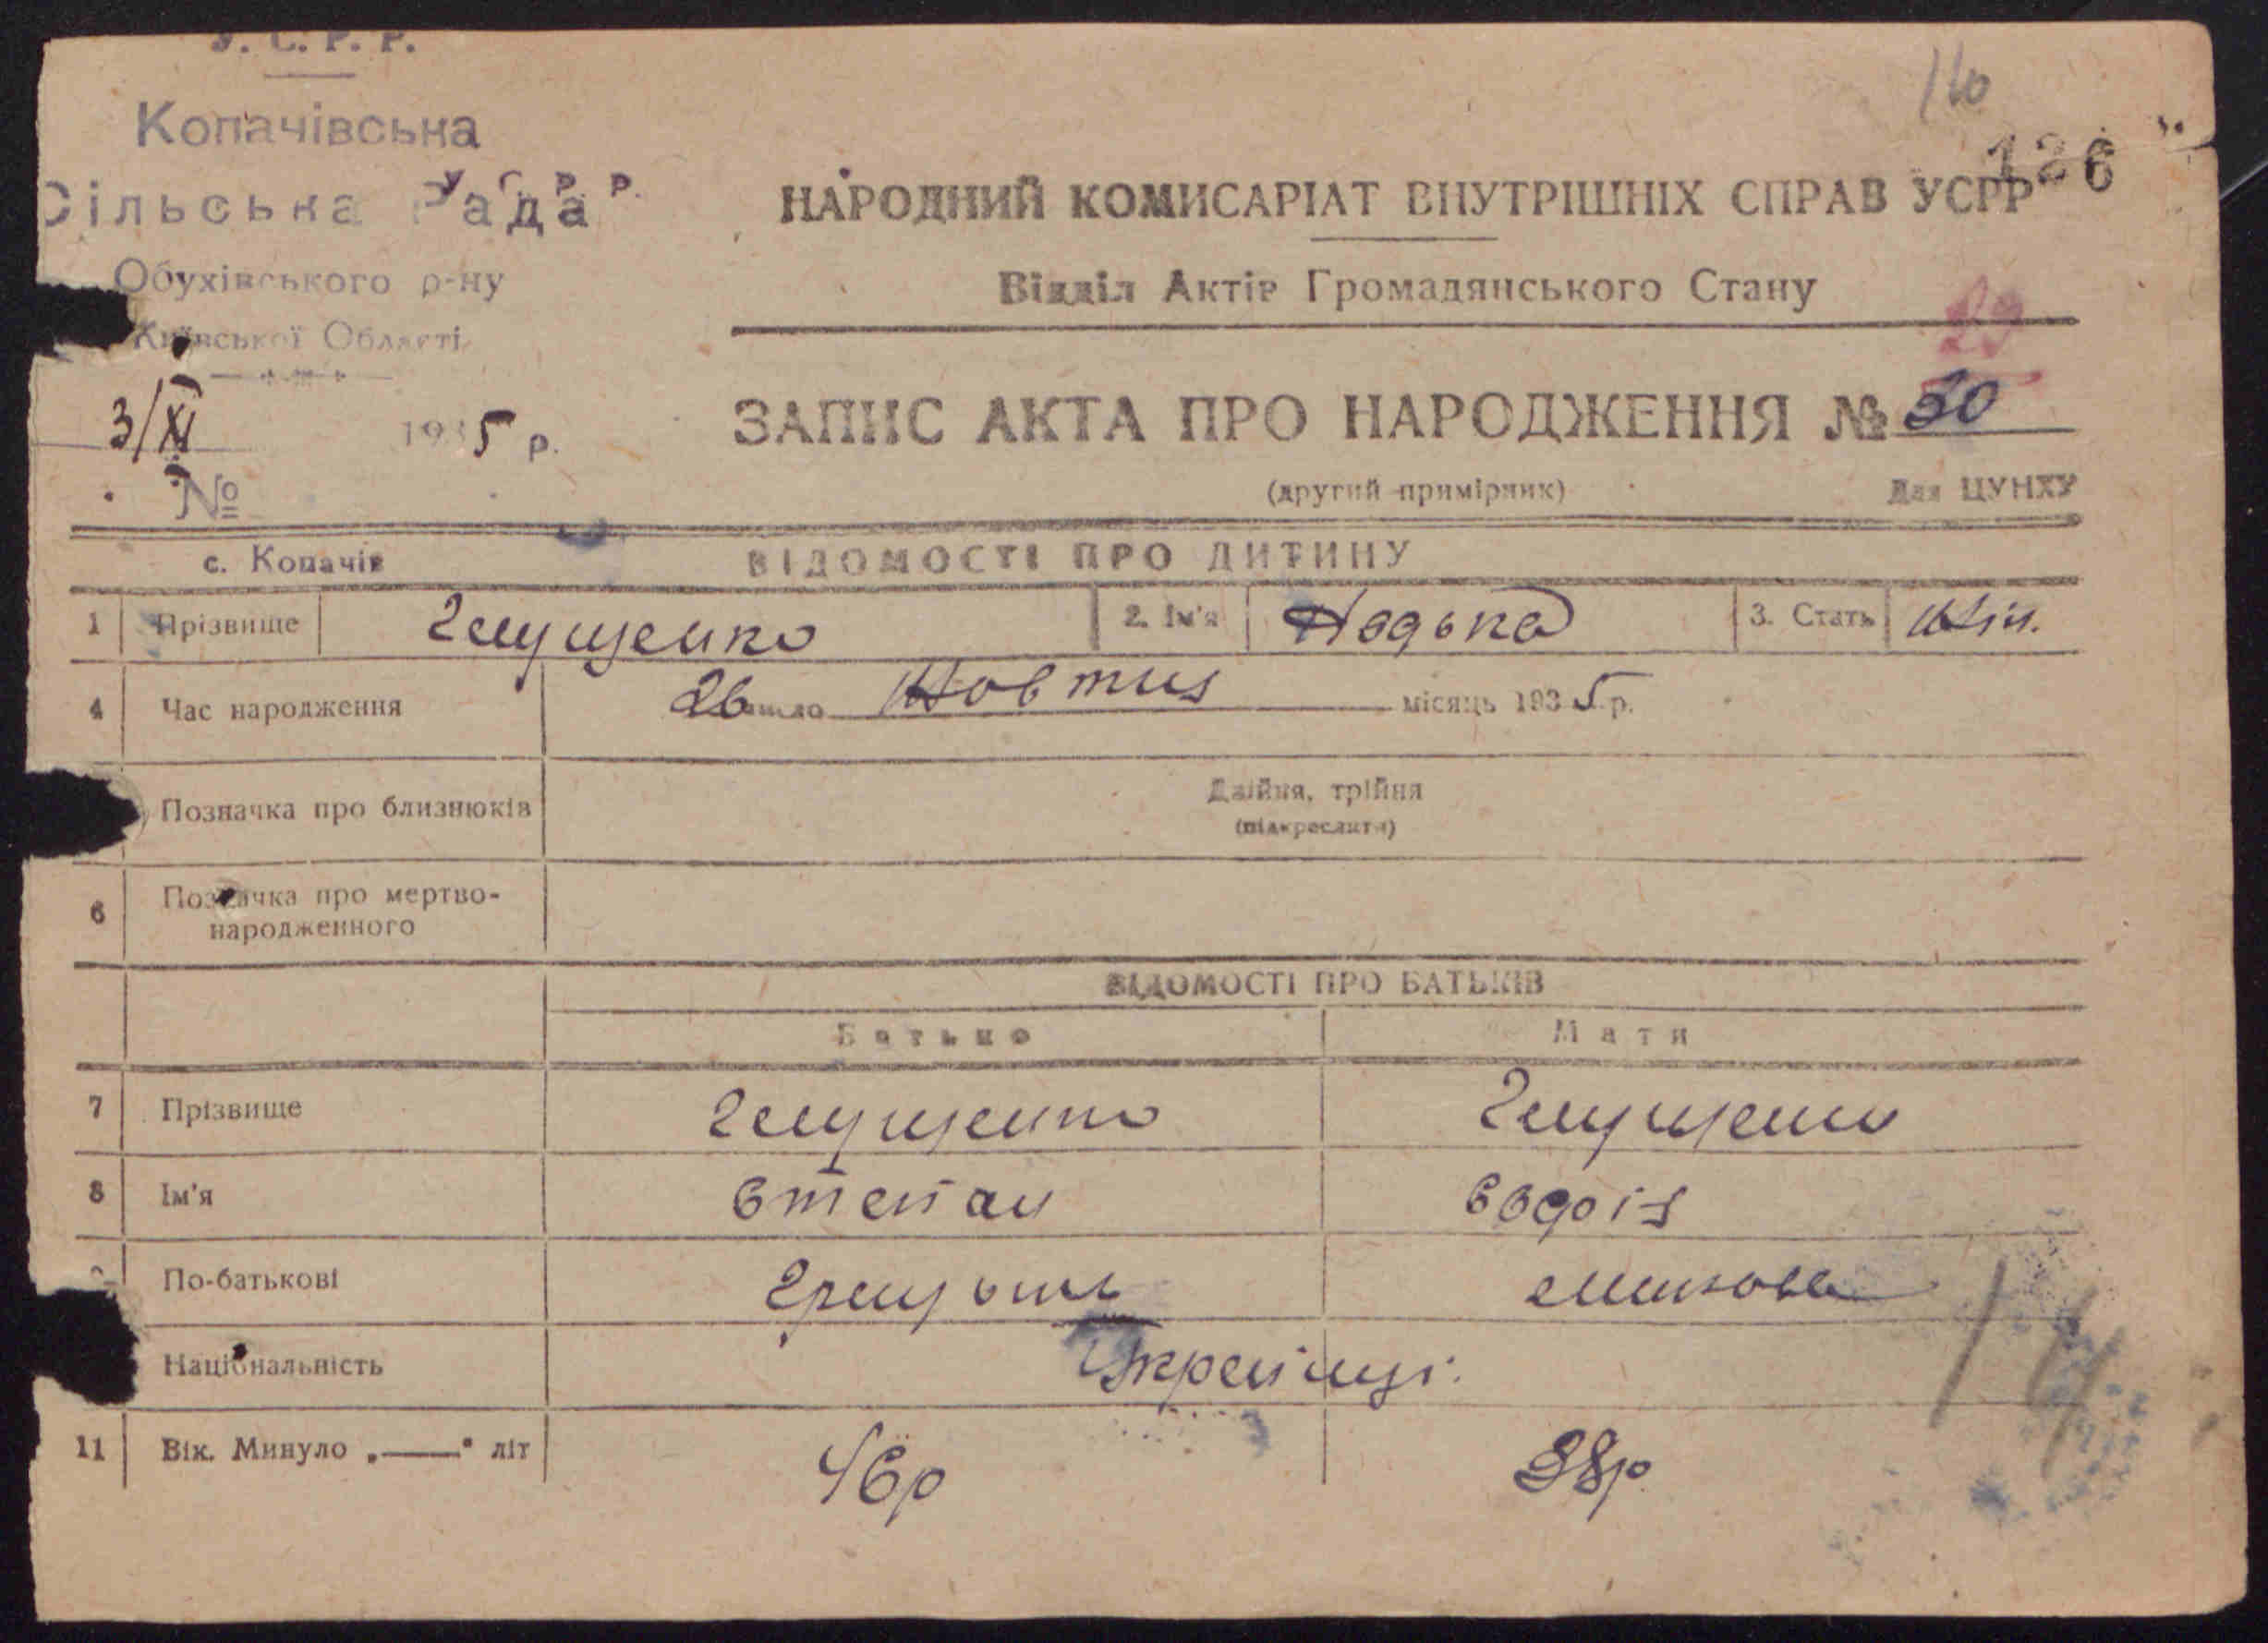 У. С. Р. Р.
Копачівська
Сільська Рада
У. С. Р. Р.
Обухівського р-ну
Київської Області
3/XI 1935 р.
№
110
126
НАРОДНИЙ КОМИСАРІАТ ВНУТРІШНІХ СПРАВ УСРР
Відділ Актів Громадянського Стану
29
ЗАПИС АКТА ПРО НАРОДЖЕННЯ № 30
(другий примірник) Для ЦУНХУ
с. Копачів ВІДОМОСТІ ПРО ДИТИНУ
1 Прізвище Гмущенко 2. Ім'я Надька 3. Стать жін.
4 Час народження 26 число Жовтня місяць 1935 р.
Позначка про близнюків Двійня, трійня
(підкреслити)
6 Позначка про мертво-
народженного
ВІДОМОСТІ ПРО БАТЬКІВ
Батько Мати
7 Прізвище Гмущенко Гмущенко
8 Ім'я Степан Євдоія
По-батькові
Національність Українці.
11 Вік. Минуло „——" літ 46р 38р.